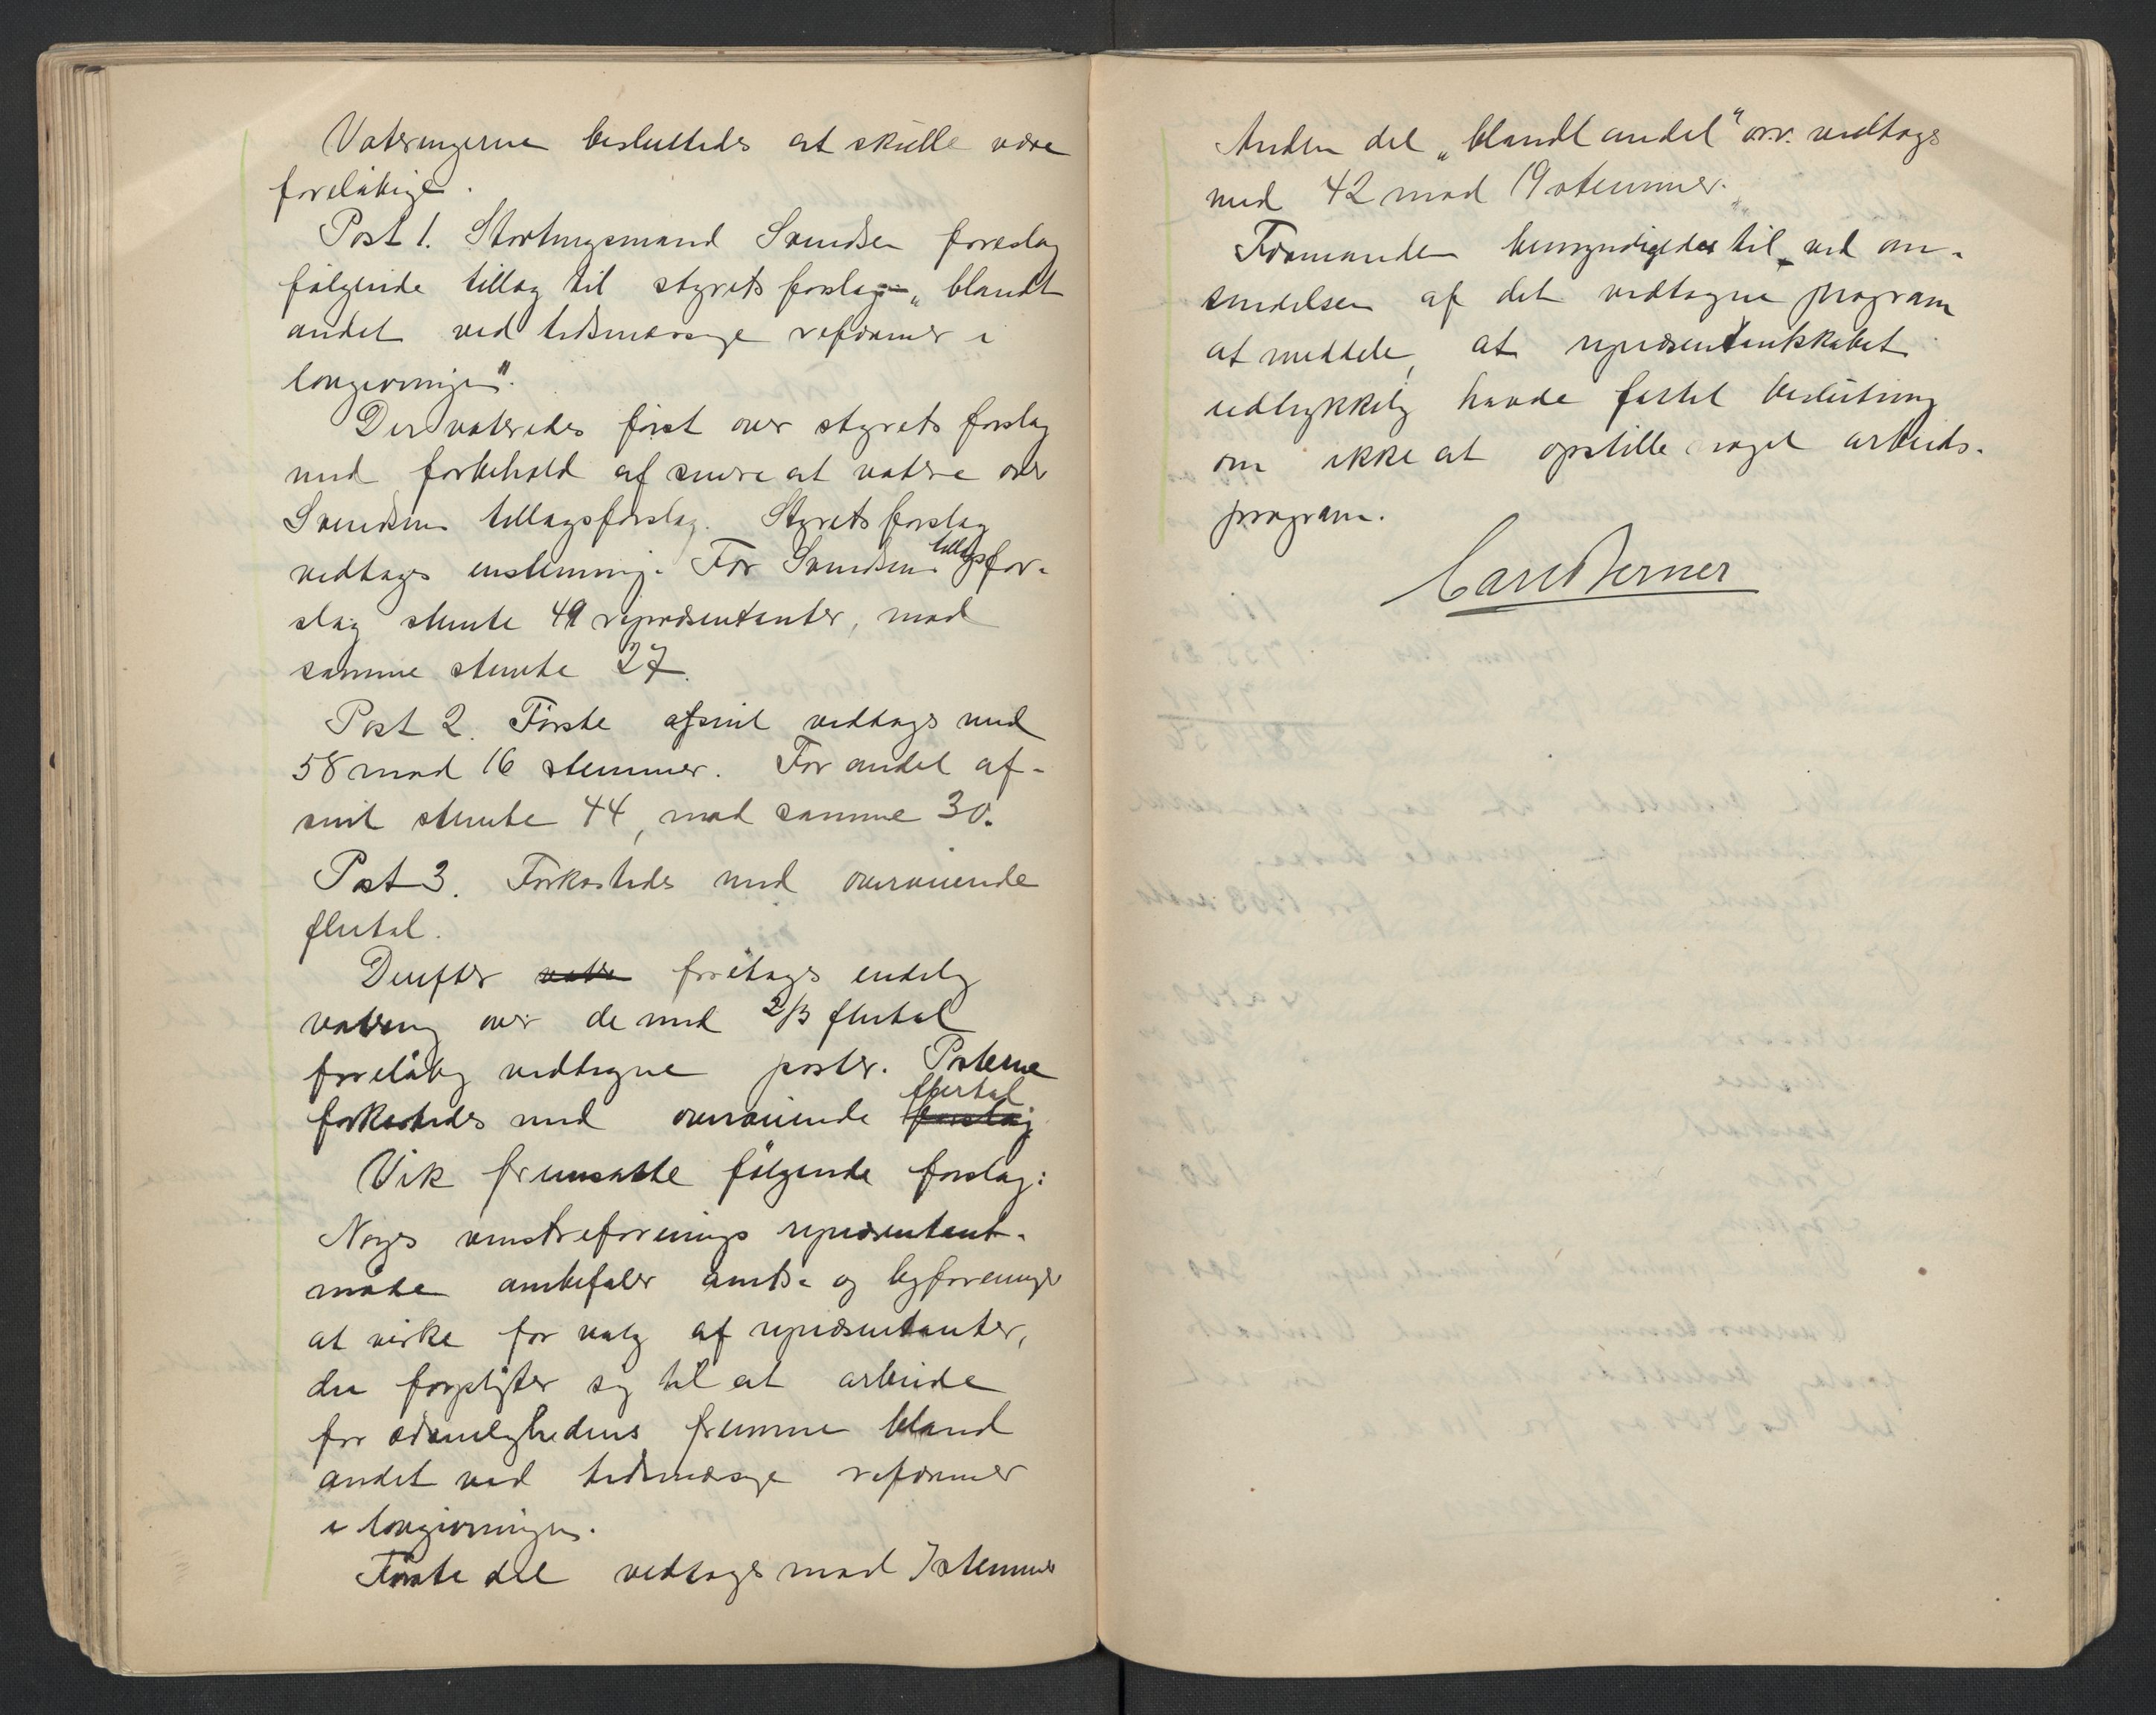 Voteringerne besluttedes at skulle være
foreløbige.
Post 1. Stortingsmand Svendsen foreslog
følgende tillæg til styrets forslag „blandt
andet ved tidsmæssige reformer i
lovgivningen".
Der voteredes først over styrets forslag
med forbehold af senere at votere over
Svendsens tillægsforslag. Styrets forslag
vedtages enstemmig. For Svendsens tillægsfor-
slag stemte 49 repræsentanter, mod
samme stemte 27.
Post 2. Første afsnit vedtages med
58 mod 16 stemmer. For andet af-
snit stemte 44, mod samme 30.
Post 3. Forkastedes med overveiende
flertal.
Derefter votere foretages endelig
votering over de med 2/3 flertal
foreløbig vedtagne poster. Posterne
forkastedes med overveiende forslag flertal
Vik fremsatte følgende forslag:
Norges venstreforenings repræsentant-
møde anbefaler amts- og byforeninger
at virke for valg af repræsentanter,
der forpligter sig til at arbeide
for ædruelighedens fremme bland
andet ved tidsmæssige reformer
i lovgivningen.
Første del vedtages mod 7 stemmer
Anden del „blandt andet" osv. vedtages
med 42 mod 19 stemmer.
Formanden bemyndigedes til ved om-
sendelsen af det vedtagne program
at meddele, at repræsentantskabet
udtrykkelig havde fattet beslutning
om ikke at opstille noget arbeids-
program.
Carl Berner